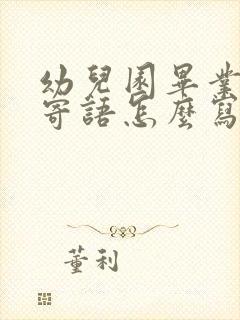 幼兒園畢業
寄語怎麼寫
董利